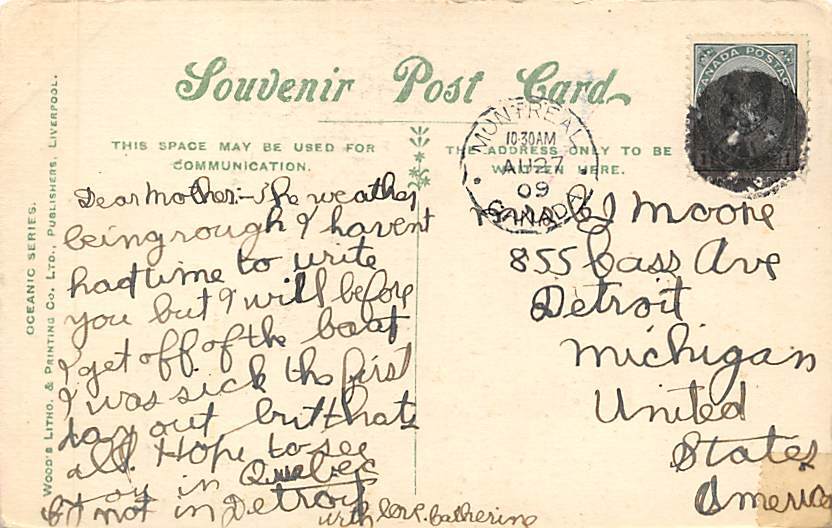 Souvenir Post Card
THIS SPACE MAY BE USED FOR
COMMUNICATION.
THE ADDRESS ONLY TO BE
WRITTEN HERE.
CANADA POSTAGE
MONTREAL
10-30AM
AU 27
09
CANADA
OCEANIC SERIES.
WOOD'S LITHO. & PRINTING CO. LTD., PUBLISHERS, LIVERPOOL.
Dear Mother:- The weather
being rough I havent
had time to write
you but I will before
I get off of the boat
I was sick the first
day out but thats
all. Hope to see
you in Quebec
if not in Detroit
with love Catherine
J Moore
855 Cass Ave
Detroit
Michigan
United
States
America